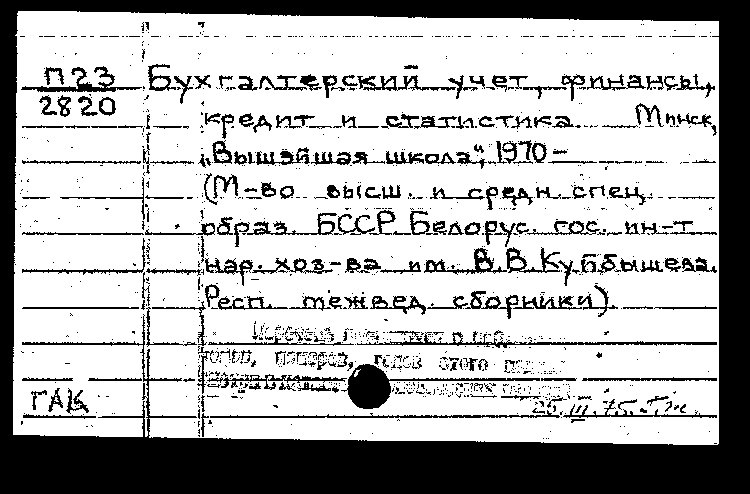 П23
2820
Бухгалтерский учет, финансы,
кредит и статистика. Минск,
„Вышэйшая школа", 1970 –
(М-во высш. и средн. спец.
образ. БССР. Белорус. гос. ин-т
нар. хоз-ва им. В.В. Куйбышева.
Респ. межвед. сборники).
томов, номеров, годов этого
ГАК
25.III.75.